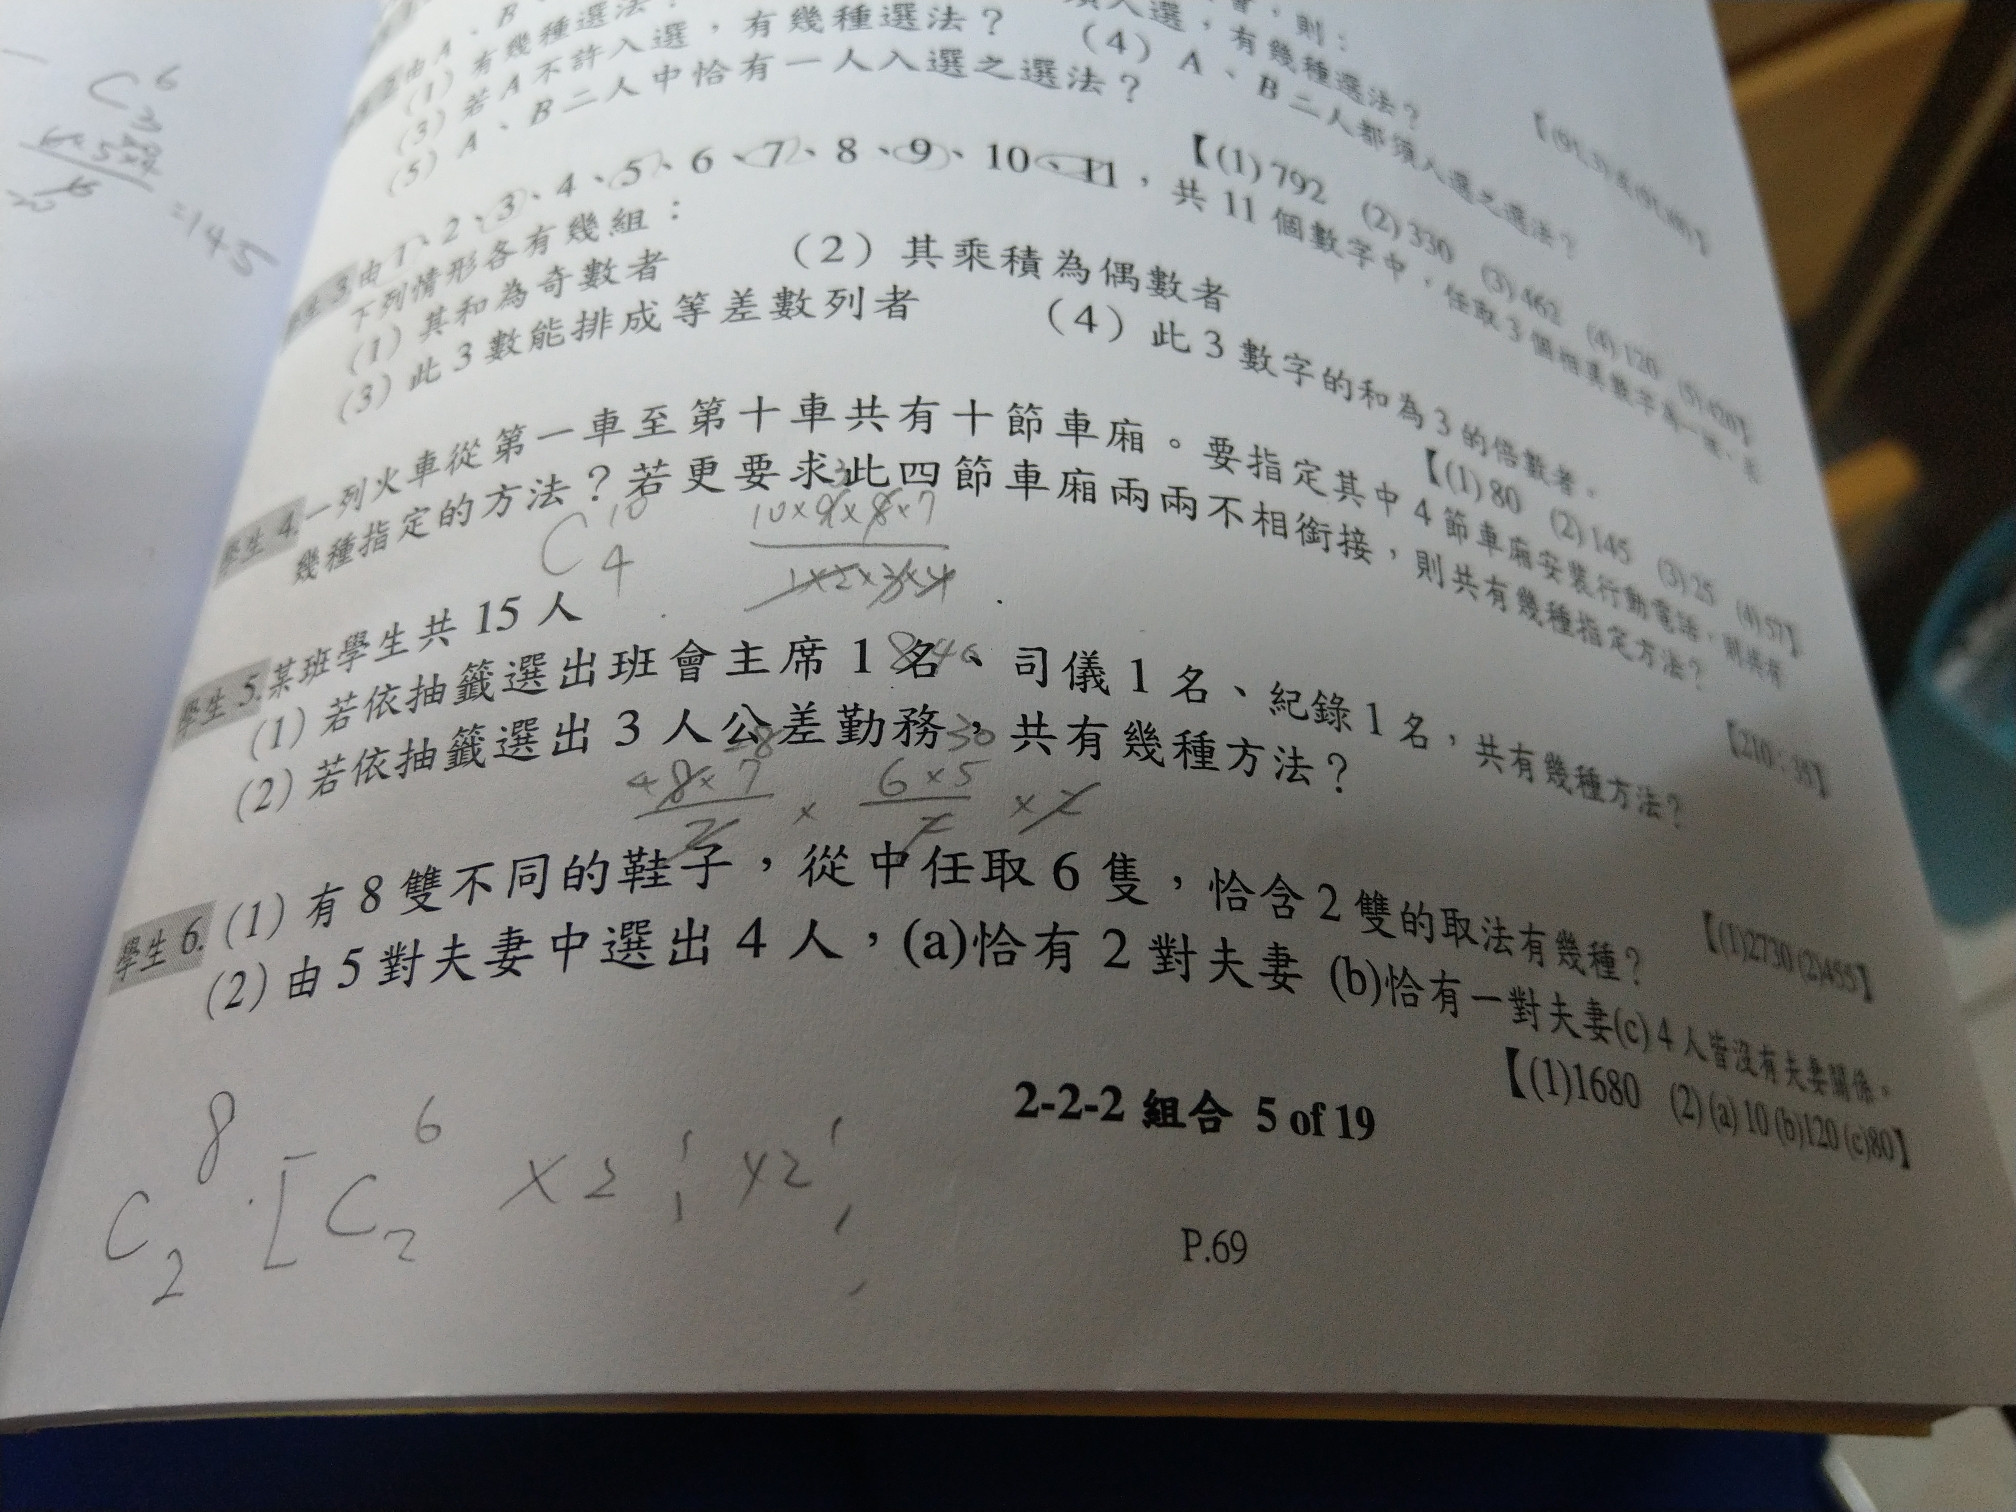 (1) 有幾種選法？
人選，有幾種選法？
(3) 若A不許入選，有幾種選法？ (4) A、B二人都須入選之選法？
(5) A、B二人中恰有一人入選之選法？
【(1) 792 (2) 330 (3) 462 (4) 120 (5) 420】
學生 3. 由 1、2、3、4、5、6、7、8、9、10、11，共 11 個數字中，任取 3 個相異數字為一組，求
下列情形各有幾組：
(1) 其和為奇數者 (2) 其乘積為偶數者
(3) 此 3 數能排成等差數列者 (4) 此 3 數字的和為 3 的倍數者。
【(1) 80 (2) 145 (3) 25 (4) 57】
學生 4. 一列火車從第一車至第十車共有十節車廂。要指定其中 4 節車廂安裝行動電話，則共有
幾種指定的方法？若更要求此四節車廂兩兩不相銜接，則共有幾種指定方法？
【210；35】
C 10 4
10×9×8×7
1×2×3×4
學生 5. 某班學生共 15 人
(1) 若依抽籤選出班會主席 1 名、司儀 1 名、紀錄 1 名，共有幾種方法？
(2) 若依抽籤選出 3 人公差勤務，共有幾種方法？
【(1)2730 (2)455】
8×7 × 6×5 ×2
學生 6. (1) 有 8 雙不同的鞋子，從中任取 6 隻，恰含 2 雙的取法有幾種？
(2) 由 5 對夫妻中選出 4 人，(a)恰有 2 對夫妻 (b)恰有一對夫妻(c) 4 人皆沒有夫妻關係。
【(1)1680 (2) (a) 10 (b)120 (c)80】
2-2-2 組合 5 of 19
C 8 2 · [ C 6 2 ×2 ×2
P.69
C 6 3
=145